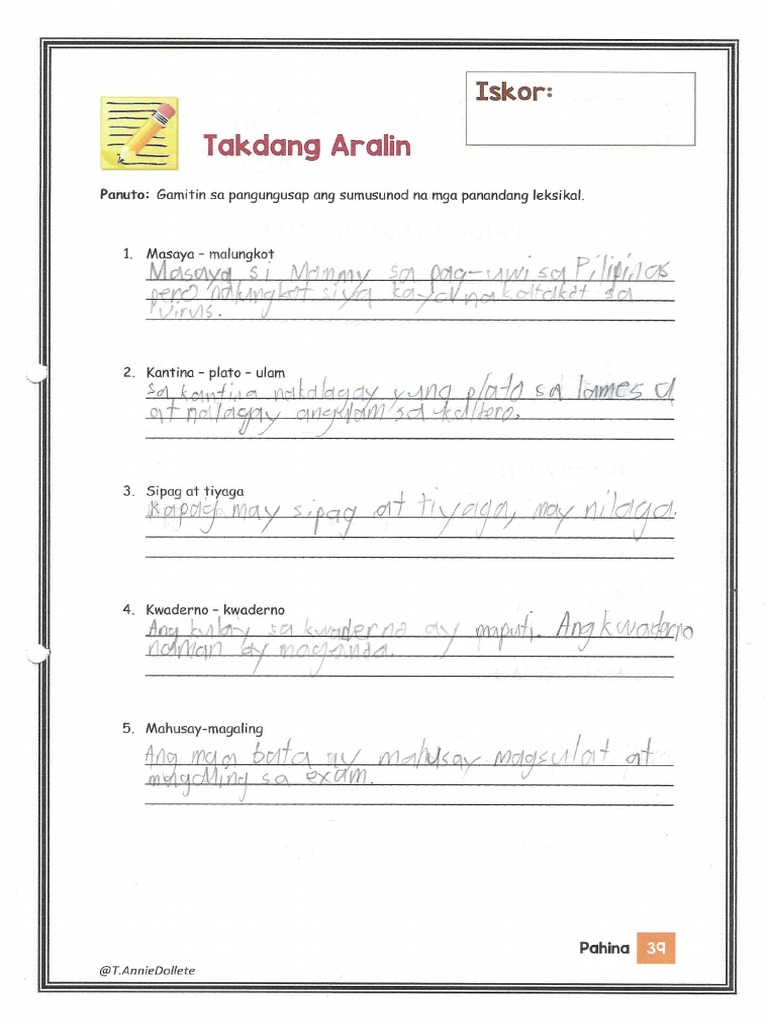 Iskor:
Takdang Aralin
Panuto: Gamitin sa pangungusap ang sumusunod na mga panandang leksikal.
1. Masaya – malungkot
Masaya si Mammy sa pag-uwi sa Pilipinas
pero nalungkot siya kaya nakatakot sa
virus.
2. Kantina – plato – ulam
sa kantina nakalagay yung plato sa lamesa
at nalagay ang ulam sa kaltero.
3. Sipag at tiyaga
Kapag may sipag at tiyaga, may nilaga.
4. Kwaderno – kwaderno
Ang kulay sa kwaderno ay maputi. Ang kwaderno
naman ay maganda.
5. Mahusay-magaling
Ang mga bata ay mahusay magsulat at
magaling sa exam.
Pahina 39
@T.AnnieDollete